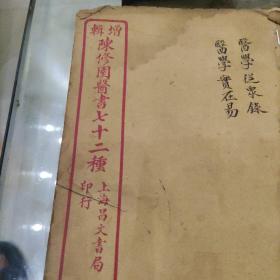 增輯
陳修園醫書七十二種
上海昌文書局
印行
醫學從衆錄
醫學實在易